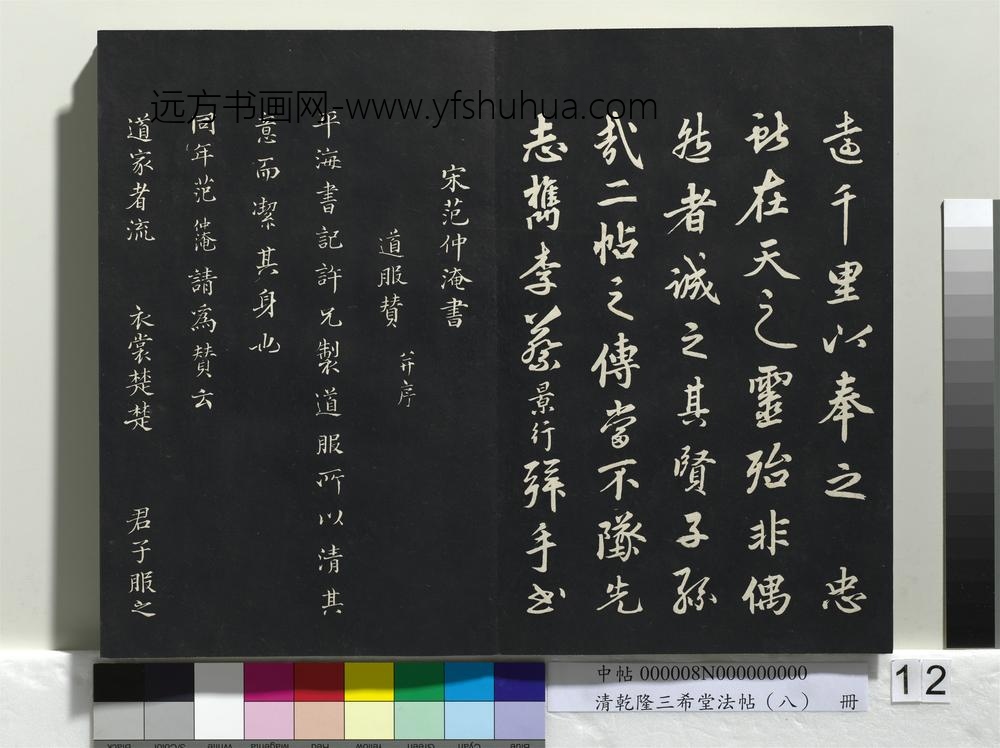 遠千里以奉之 忠
獻在天之靈殆非偶
然者誠之其賢子孫
哉二帖之傳當不墜先
志檇李蔡景行拜手書
宋范仲淹書
道服赞 并序
平海書記許兄製道服所以清其
意而潔其身也
同年范仲淹請為赞云
道家者流 衣裳楚楚 君子服之
远方书画网-www.yfshuhua.com
中帖 000008N000000000
清乾隆三希堂法帖（八） 冊
12
Black
3/Color
White
Magenta
Red
Yellow
Green
Cyan
Blue